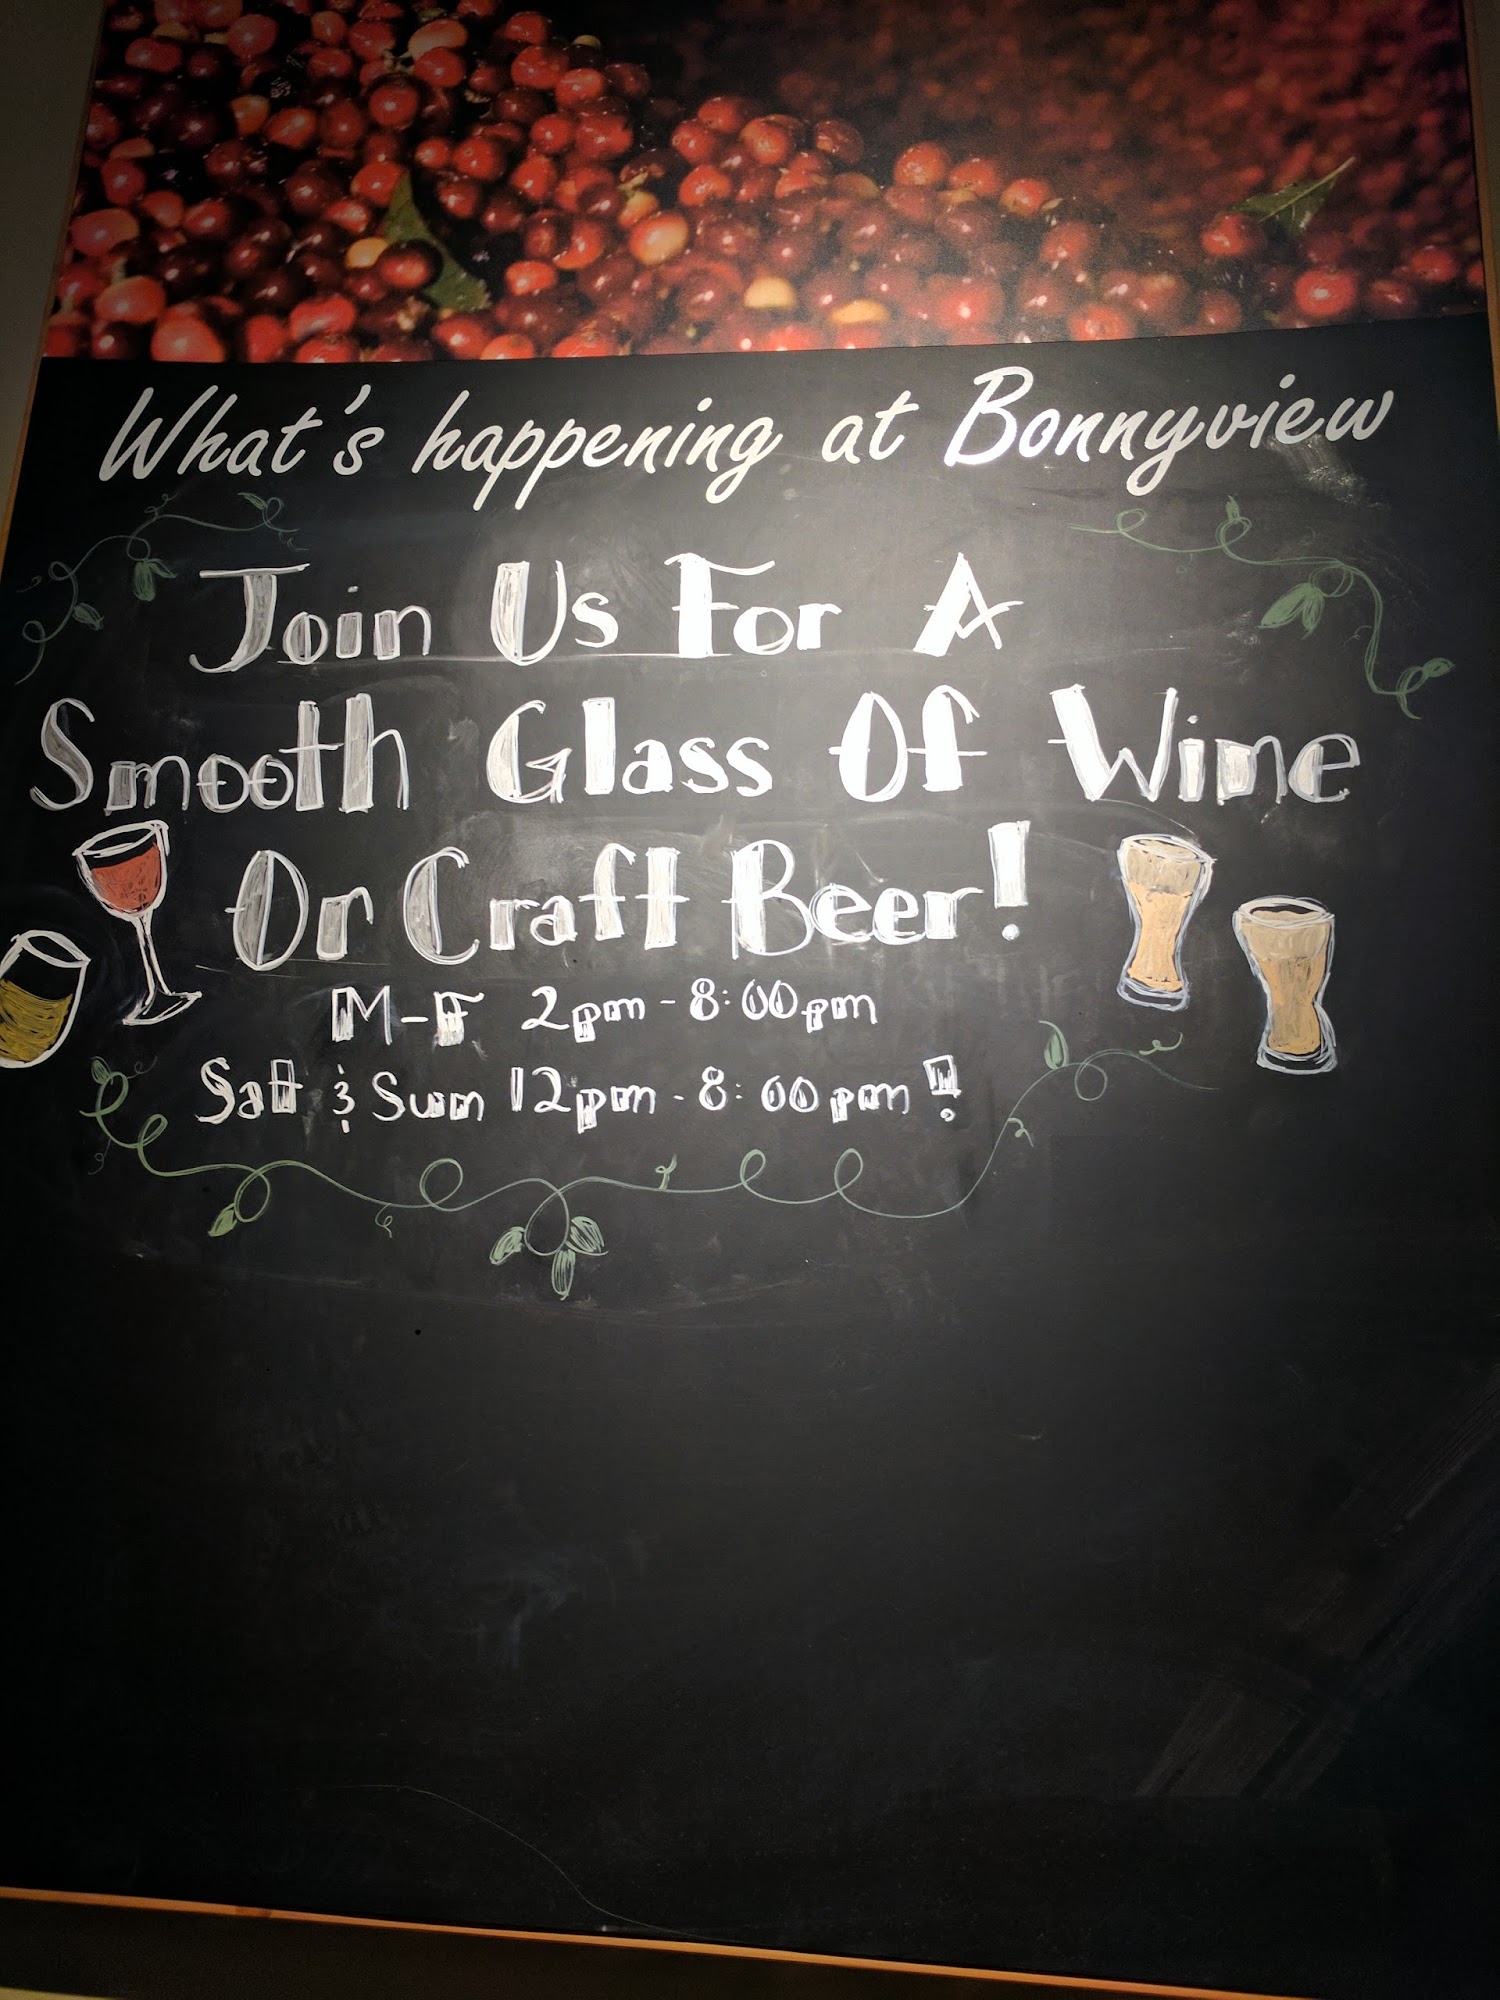 What's happening at Bonnyview
Join Us For A
Smooth Glass Of Wine
Or Craft Beer!
M-F 2pm - 8:00pm
Sat & Sun 12pm - 8:00pm!